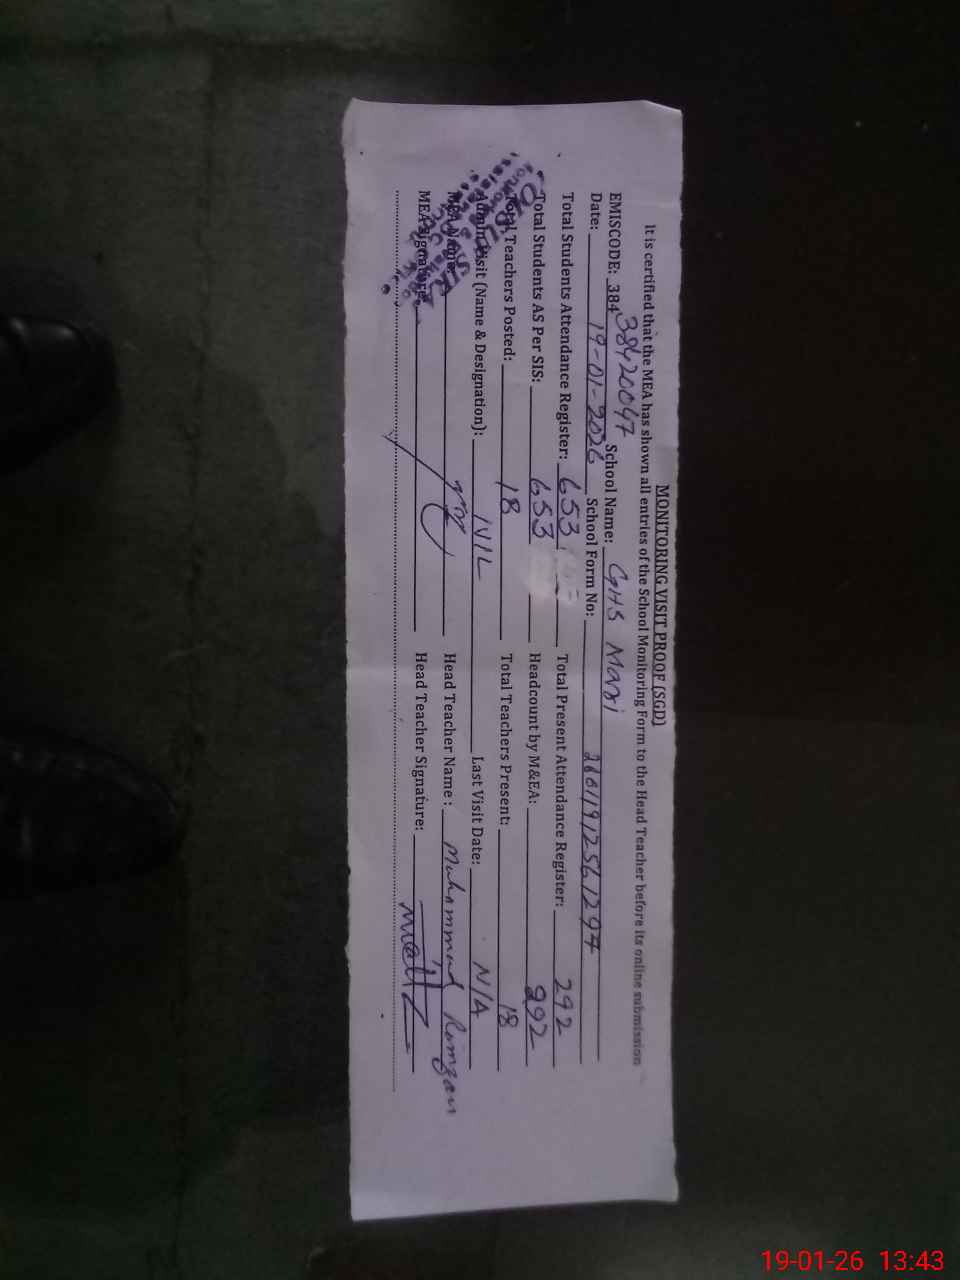 MONITORING VISIT PROOF (SGD)
It is certified that the MEA has shown all entries of the School Monitoring Form to the Head Teacher before its online submission
EMISCODE: 384 38420047 School Name: GHS Mari
Date: 19-01-2026 School Form No:
Total Students Attendance Register: 653 Total Present Attendance Register: 292
Total Students AS Per SIS: 653 Headcount by M&EA: 292
Total Teachers Posted: 18 Total Teachers Present: 18
Admin Visit (Name & Designation): Last Visit Date: N/A
MEA Name: Head Teacher Name : Muhammad Ramzan
MEA Signature: Head Teacher Signature:
19-01-26 13:43